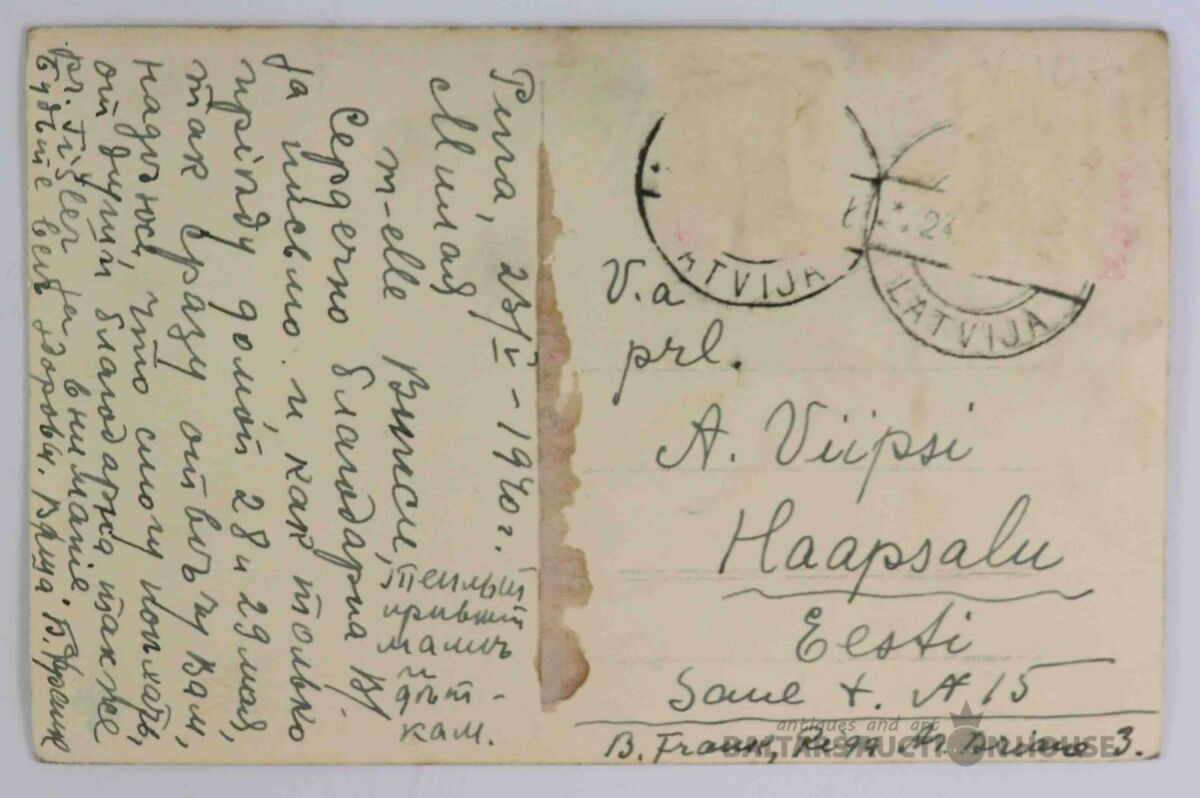 Рига, 23/V - 1940 г.
Милая
m-elle Випси,
Сердечно благодарна В/
за письмо. и как только
пріѣду домой, 28 и 29 мая,
так сразу отвѣчу Вам,
надѣюсь, что смогу
от души благодарна также
pr. за вниманіе.
Будьте всѣ здоровы. Ваша. Б. Франк
теплый
привѣт
мамѣ
и
дѣт-
кам.
LATVIJA
24
LATVIJA
V.a
prl.
A. Viipsi
Haapsalu
Eesti
Saue t. № 15
B. Frank, Riga 3.
antiques and art
BALTARS AUCTION HOUSE